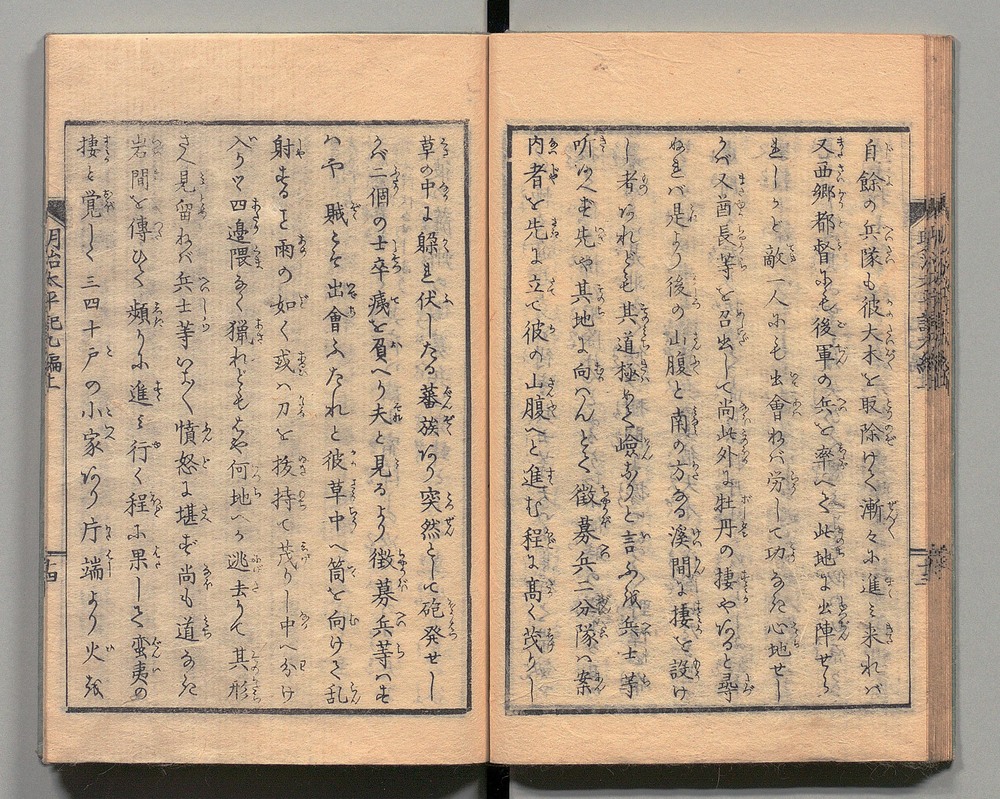 自餘の兵隊も彼大木を取除けて漸々に進み来れバ
又西郷都督にも後軍の兵を率へて此地に出陣せら
れしかど敵一人にも出會ねバ労して功なき心地せし
かバ又酋長等を召出して尚此外に牡丹の棲やあると尋
ぬれバ是より後の山腹と南の方なる溪間に棲を設け
し者あれども其道極めて嶮なりと言ふ然バ兵士等
听くへも先や其地に向へんとて徴募兵二分隊ハ案
内者を先に立て彼の山腹へと進む程に高く茂りし
草の中に躱れ伏したる蕃族あり突然として砲発せし
かバ二個の士卒痍を負へり夫と見るより徴募兵等ハす
ハや賊とを出會ふたれと彼草中へ筒を向けて乱
射すること雨の如く或ハ刀を抜持て茂りし中へ分け
入りつゝ四邊隈なく猟れどもはや何地へか逃去りて其形
さへ見留ねバ兵士等いよく憤怒に堪ず尚も道なき
岩間を傳ひて頻りに進み行く程に果して蛮夷の
棲と覚しく三四十戸の小家あり片端より火を
明治太平記九編上
十四